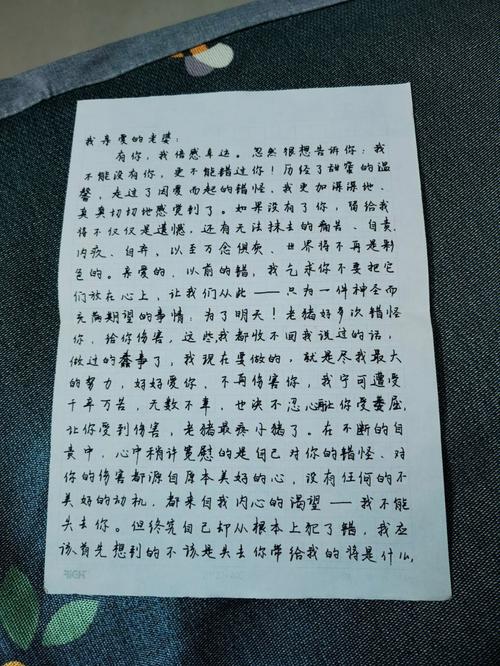 我亲爱的老婆：
有你，我倍感幸运。忽然很想告诉你：我
不能没有你，更不能错过你！历经了甜蜜的温
馨，走过了因爱而起的错怪，我更加深深地、
真真切切地感觉到了。如果没有了你，留给我
得不仅仅是遗憾，还有无法抹去的痛苦、自责、
内疚、自弃，以至万念俱灰、世界得不再是彩
色的。亲爱的，以前的错，我乞求你不要把它
们放在心上，让我们从此——只为一件神圣而
充满期望的事情：为了明天！老猪好多次错怪
你，给你伤害，这些我都收不回我说过的话，
做过的蠢事了，我现在要做的，就是尽我最大
的努力，好好爱你、不再伤害你，我宁可遭受
千辛万苦，无数不幸，也决不忍心让你受委屈，
让你受到伤害，老猪最疼小猪了。在不断的自
责中，心中稍许宽慰的是自己对你的错怪、对
你的伤害都源自原本美好的心，没有任何的不
美好的动机，都来自我内心的渴望——我不能
失去你。但终究自己却从根本上犯了错，我应
该首先想到的不该是失去你带给我的将是什么，